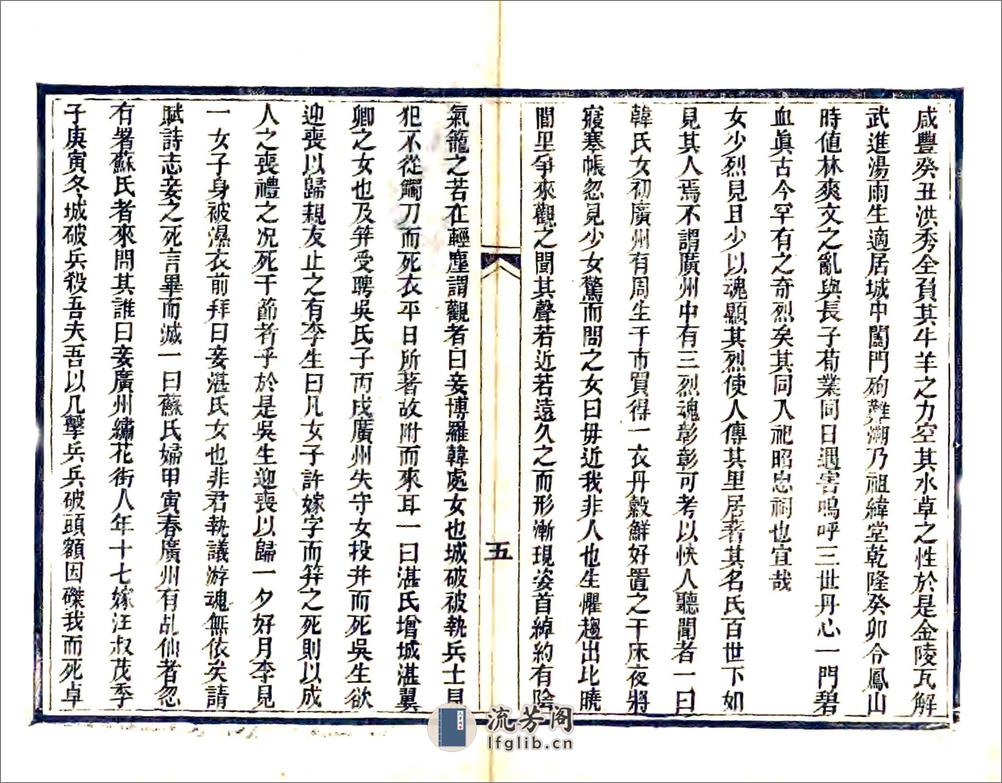 咸豐癸丑洪秀全負其牛羊之力空其水草之性於是金陵瓦解
武進湯雨生適居城中闔門殉難溯乃祖緯堂乾隆癸卯令鳳山
時值林爽文之亂與長子荀業同日遇害嗚呼三世丹心一門碧
血眞古今罕有之奇烈矣其同入祀昭忠祠也宜哉
女少烈見且少以魂顯其烈使人傳其里居著其名氏百世下如
見其人焉不謂廣州中有三烈魂彰彰可考以怏人聽聞者一曰
韓氏女初廣州有周生于市買得一衣丹縠鮮好置之于床夜將
寢褰帳忽見少女驚而問之女曰毋近我非人也生懼趨出比曉
閭里爭來觀之聞其聲若近若遠久之而形漸現姿首綽約有陰
五
氣籠之若在輕塵謂觀者曰妾博羅韓處女也城破被執兵士見
犯不從觸刀而死衣平日所著故附而來耳一曰湛氏增城湛翼
卿之女也及笄受聘吳氏子丙戌廣州失守女投井而死吳生欲
迎喪以歸親友止之有李生曰凡女子許嫁字而笄之死則以成
人之喪禮之况死于節者乎於是吳生迎喪以歸一夕好月李見
一女子身被濕衣前拜曰妾湛氏女也非君執議游魂無依矣請
賦詩志妾之死言畢而滅一曰蘇氏婦甲寅春廣州有乩仙者忽
有署蘇氏者來問其誰曰妾廣州繡花街人年十七嫁汪叔茂季
子庚寅冬城破兵殺吾夫吾以几擊兵兵破頭額因磔我而死卓
流芳阁
lfglib.cn